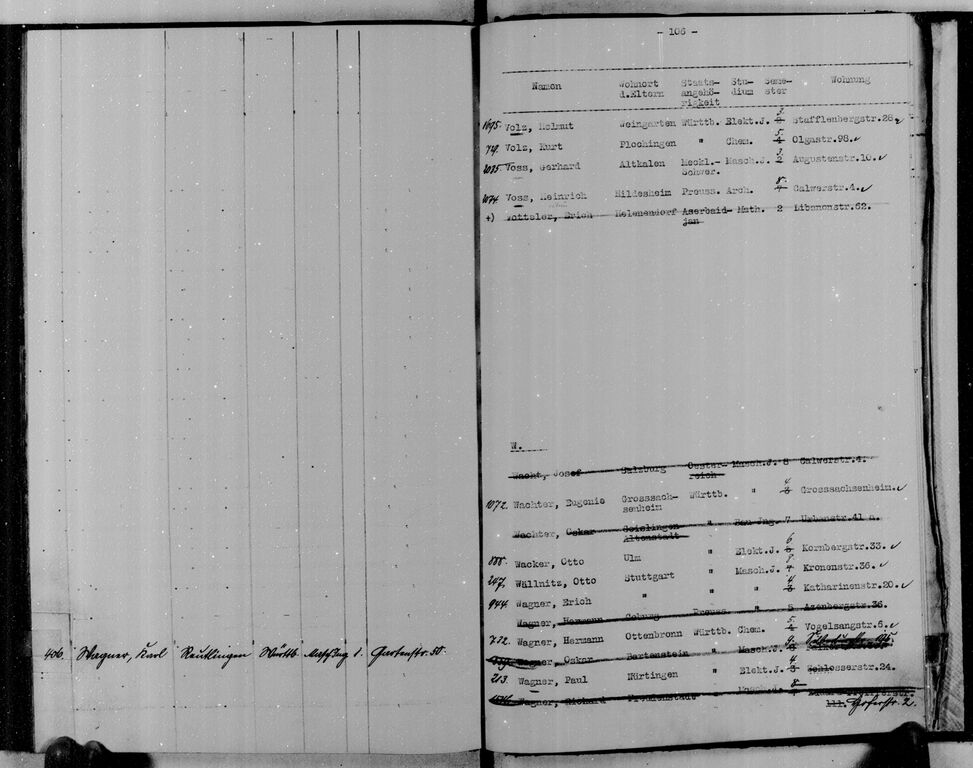 406. Wagner, Karl Reutlingen Württb. Masch'Ing 1. Gartenstr. 50.
- 106 -
Namen Wohnort d.Eltern Staats-angehö-rigkeit Stu-dium Seme-ster Wohnung
1695. Volz, Helmut Weingarten Württb. Elekt.J. 3 Stafflenbergstr.28.
74. Volz, Kurt Plochingen " Chem. 5 4 Olgastr.98.
1085. Voss, Gerhard Altkalen Meckl.-Schwer. Masch.J. 3 2 Augustenstr.10.
1074. Voss, Heinrich Hildesheim Preuss. Arch. 8. 7 Calwerstr.4.
+) Votteler, Erich Helenendorf Aserbaid-jan Math. 2 Libanonstr.62.
W.
Wacht, Josef Salzburg Oester-reich Masch.J. 8 Calwerstr.4.
1072. Wachter, Eugenie Grosssach-senheim Württb. " 4 3 Grosssachsenheim.
Wachter, Oskar Geislingen Altenstadt " Bau-Ing. 7 Urbanstr.41 a.
888. Wacker, Otto Ulm " Elekt.J. 6 Kornbergstr.33.
247. Wällnitz, Otto Stuttgart " Masch.J. 7 Kronenstr.36.
944. Wagner, Erich " " " 4 3 Katharinenstr.20.
Wagner, Hermann Coburg Preuss. " 8 Azenbergstr.36.
722. Wagner, Hermann Ottenbronn Württb. Chem. 5 4 Vogelsangstr.6.
Wagner, Oskar Bartenstein " Masch.J.
213. Wagner, Paul Nürtingen " Elekt.J. 4 3 Schlosserstr.24.
Wagner, Richard Freudenstadt " Masch.J. 8 7
111. Hoferstr. 2.